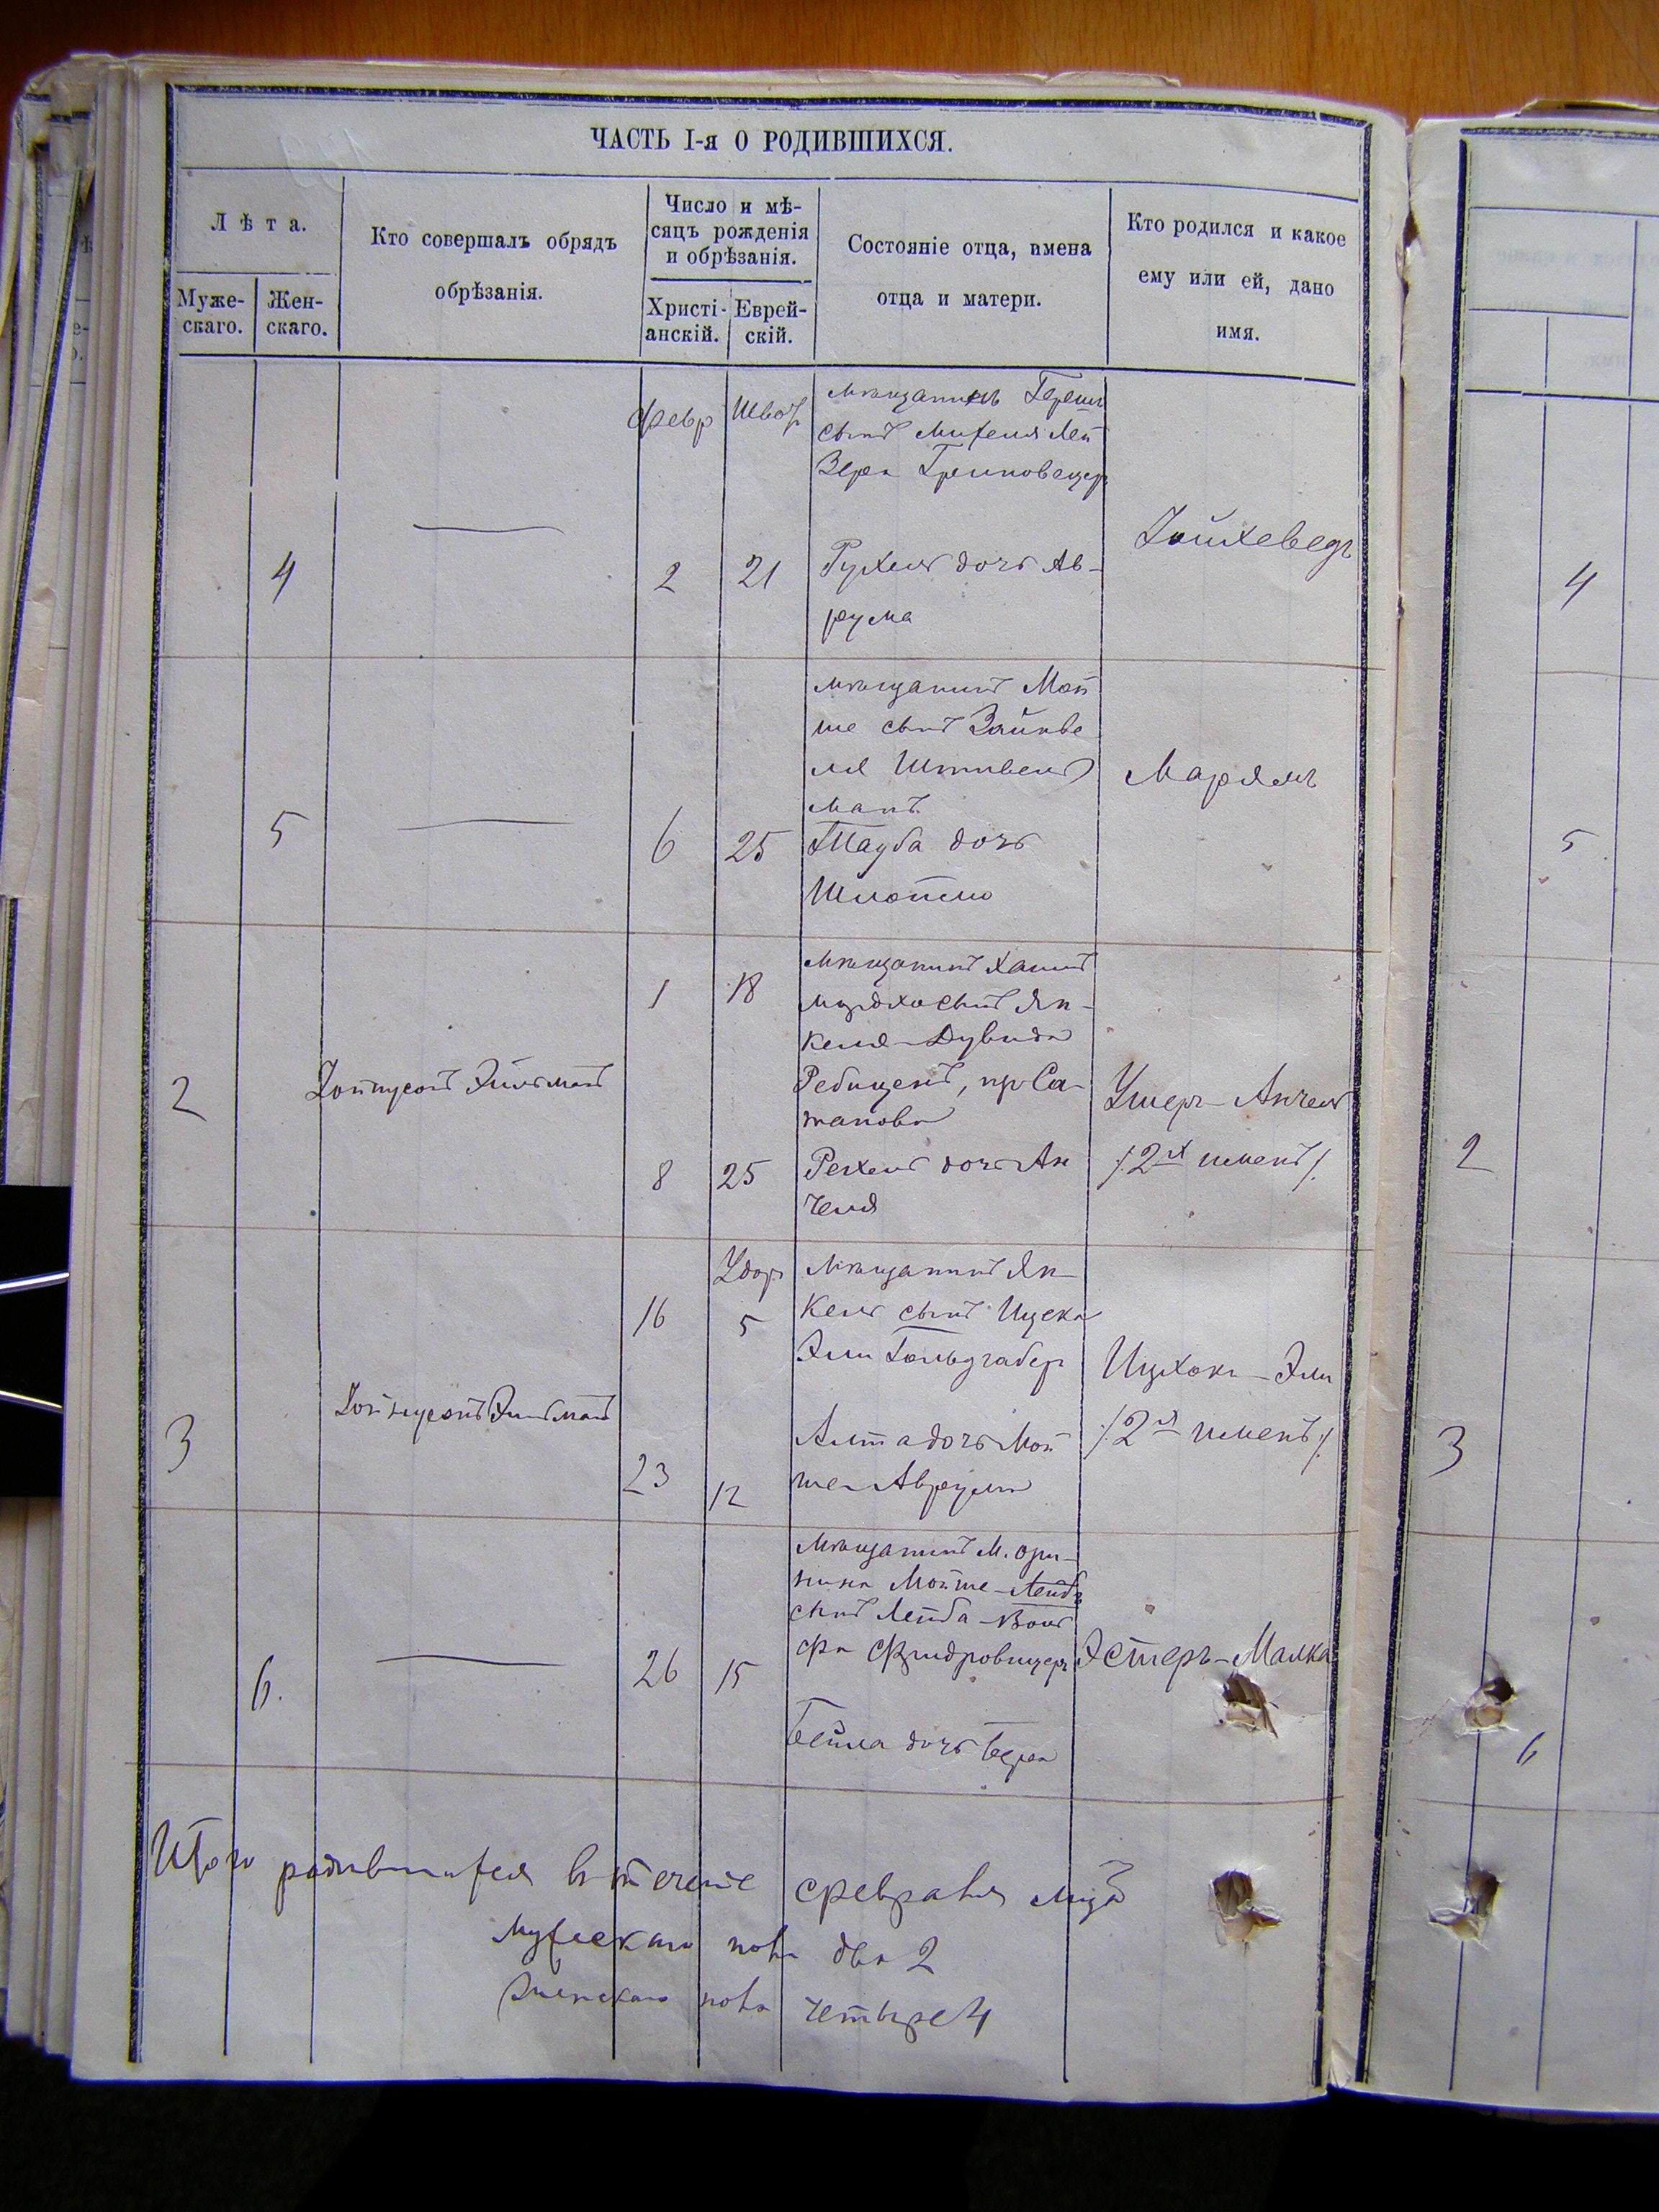 ЧАСТЬ I-я О РОДИВШИХСЯ.
Лѣта.
Муже-
скаго.
Жен-
скаго.
Кто совершалъ обрядъ
обрѣзанія.
Число и мѣ-
сяцъ рожденія
и обрѣзанія.
Христі-
анскій.
Еврей-
скій.
Состояніе отца, имена
отца и матери.
Кто родился и какое
ему или ей, дано
имя.
4
Февр
2
21
мѣщанинъ Гершъ
сынъ Михеля Лей
Зера
Рухля дочь Ав-
рума
Хойхеведъ
5
6
25
мѣщанинъ Мой
ше сынъ Зайнве
ля Штивель
манъ
Тауба дочь
Шлоймо
Марьямъ
2
1
18
8
25
мѣщанинъ Хаимъ
сынъ Ян-
келя Дувида
пр Са-
танова
Рехля дочь Ан
челя
Ушеръ-Анчель
/2хъ именъ/
3
16
5
23
12
мѣщанинъ Ян-
кель сынъ Ицека
Эли Гольдгаберъ
Алта дочь Мой
ше-Аврума
Ицхокъ-Эли
/2хъ именъ/
6.
26
15
мѣщанинъ м.
Мойше-Лейбъ
сынъ Лейба-Воль
фа
Бейла дочь Бера
Эстеръ-Малка
Итого родившихся въ теченіе февраля
Мужескаго пола два 2
Женскаго пола четыре 4
4
5
2
3
6